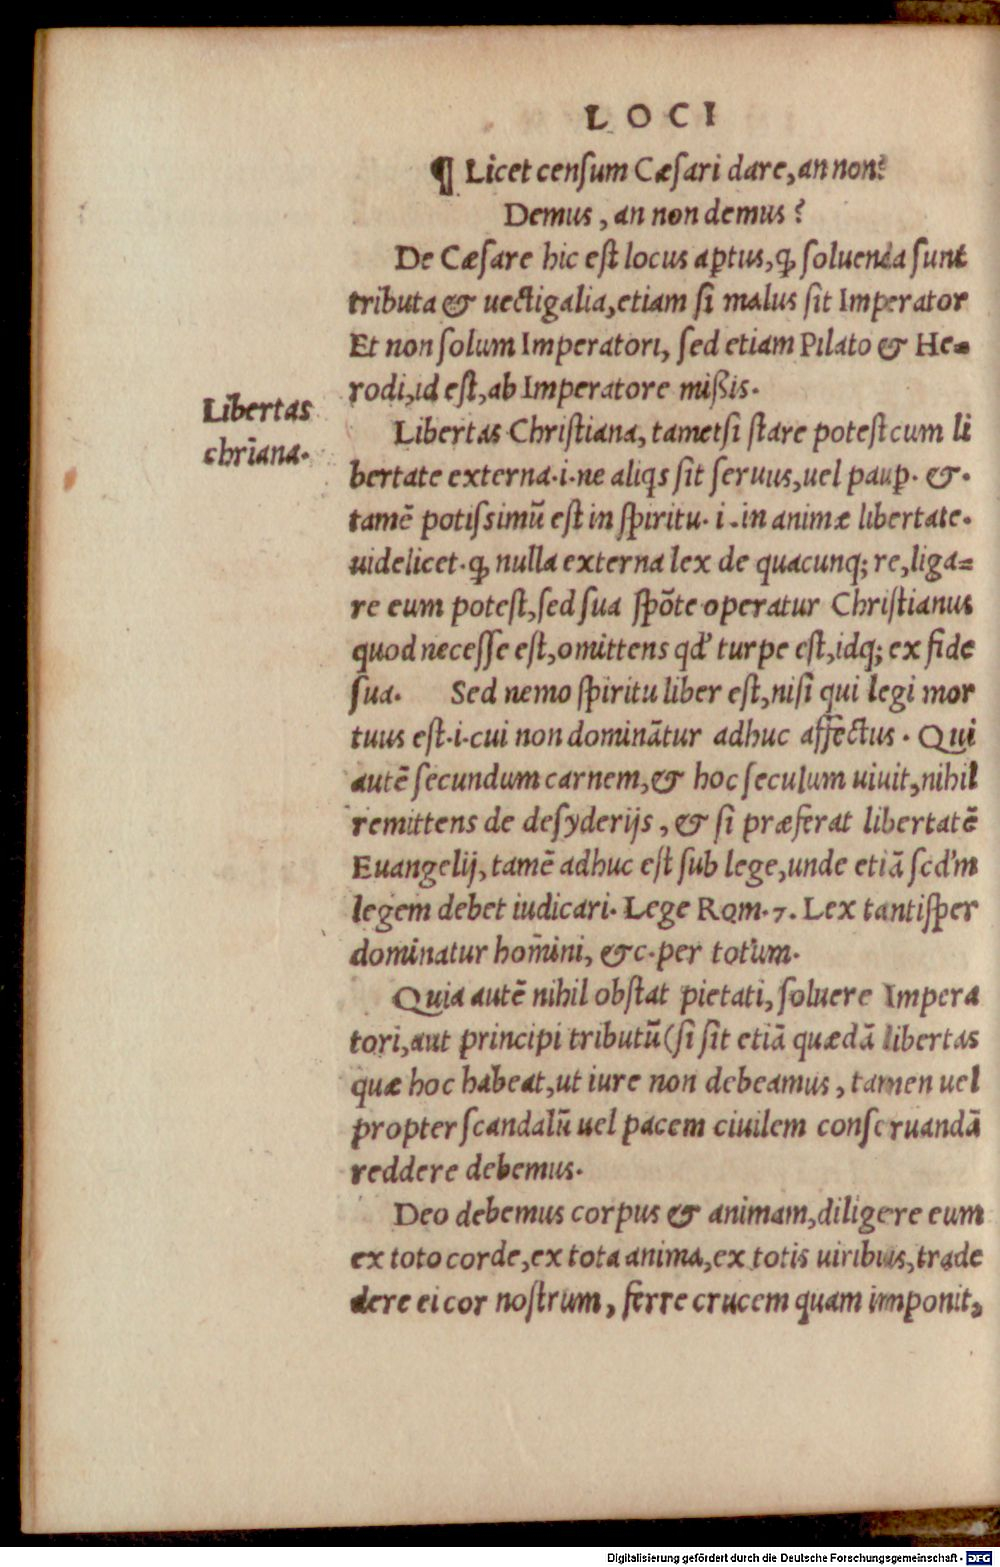 LOCI
¶ Licet censum Cæsari dare, an non?
Demus, an non demus?
De Cæsare hic est locus aptus, ꝙ soluenda sunt
tributa & uectigalia, etiam si malus sit Imperator
Et non solum Imperatori, sed etiam Pilato & He=
rodi, id est, ab Imperatore mißis.
Libertas
chr̄iana.
Libertas Christiana, tametsi stare potest cum li
bertate externa .i. ne aliqs sit seruus, uel paup̱. &.
tamē potissimū est in spiritu .i. in animæ libertate.
uidelicet. ꝙ nulla externa lex de quacunq; re, liga=
re eum potest, sed sua spōte operatur Christianus
quod necesse est, omittens qd' turpe est, idq; ex fide
sua. Sed nemo spiritu liber est, nisi qui legi mor
tuus est .i. cui non dominātur adhuc affectus. Qui
autē secundum carnem, & hoc seculum uiuit, nihil
remittens de desyderijs, & si præferat libertatē
Euangelij, tamē adhuc est sub lege, unde etiā scd'm
legem debet iudicari. Lege Rom. 7. Lex tantisper
dominatur hom̄ini, &c. per totum.
Quia autē nihil obstat pietati, soluere Impera
tori, aut principi tributū (si sit etiā quædā libertas
quæ hoc habeat, ut iure non debeamus, tamen uel
propter scandalū uel pacem ciuilem conseruandā
reddere debemus.
Deo debemus corpus & animam, diligere eum
ex toto corde, ex tota anima, ex totis uiribus, trade
dere ei cor nostrum, ferre crucem quam imponit,
Digitalisierung gefördert durch die Deutsche Forschungsgemeinschaft - DFG